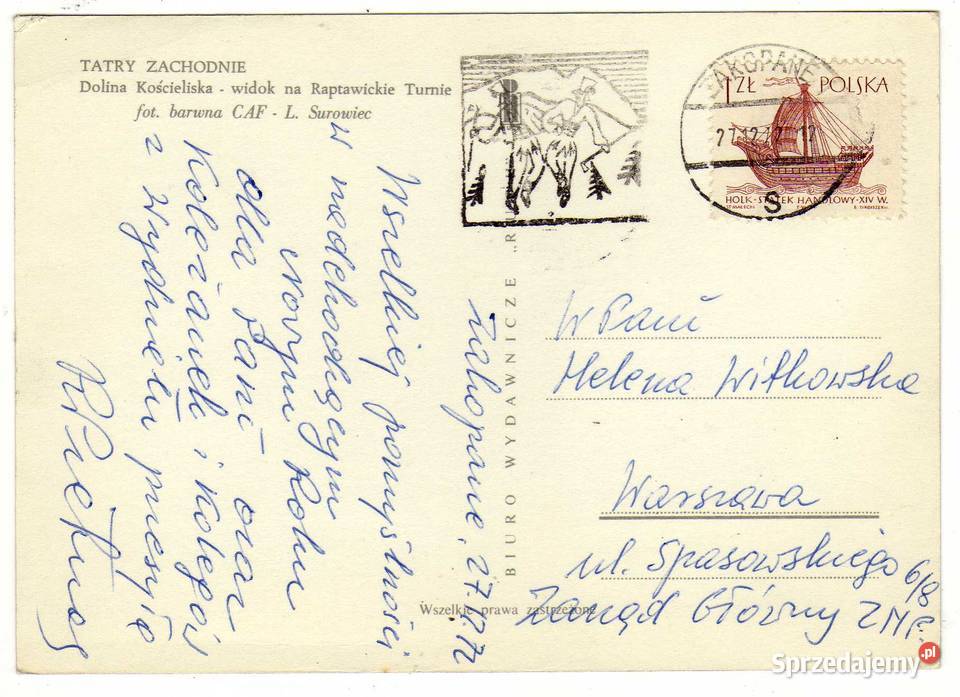 TATRY ZACHODNIE
Dolina Kościeliska - widok na Raptawickie Turnie
fot. barwna CAF - L. Surowiec
ZAKOPANE
S
1 ZŁ POLSKA
HOLK-STATEK HANDLOWY-XIV W.
Zakopane, 27.12.
Wszelkiej pomyślności
w nadchodzącym
Nowym Roku
dla Pani oraz
Koleżanek i Kolegów
z Wydziału
BIURO WYDAWNICZE „RU
WPani
Helena Witkowska
Warszawa
ul. Spasowskiego 6/8
Zarząd Główny ZNP.
Wszelkie prawa zastrzeżone
Sprzedajemy.pl